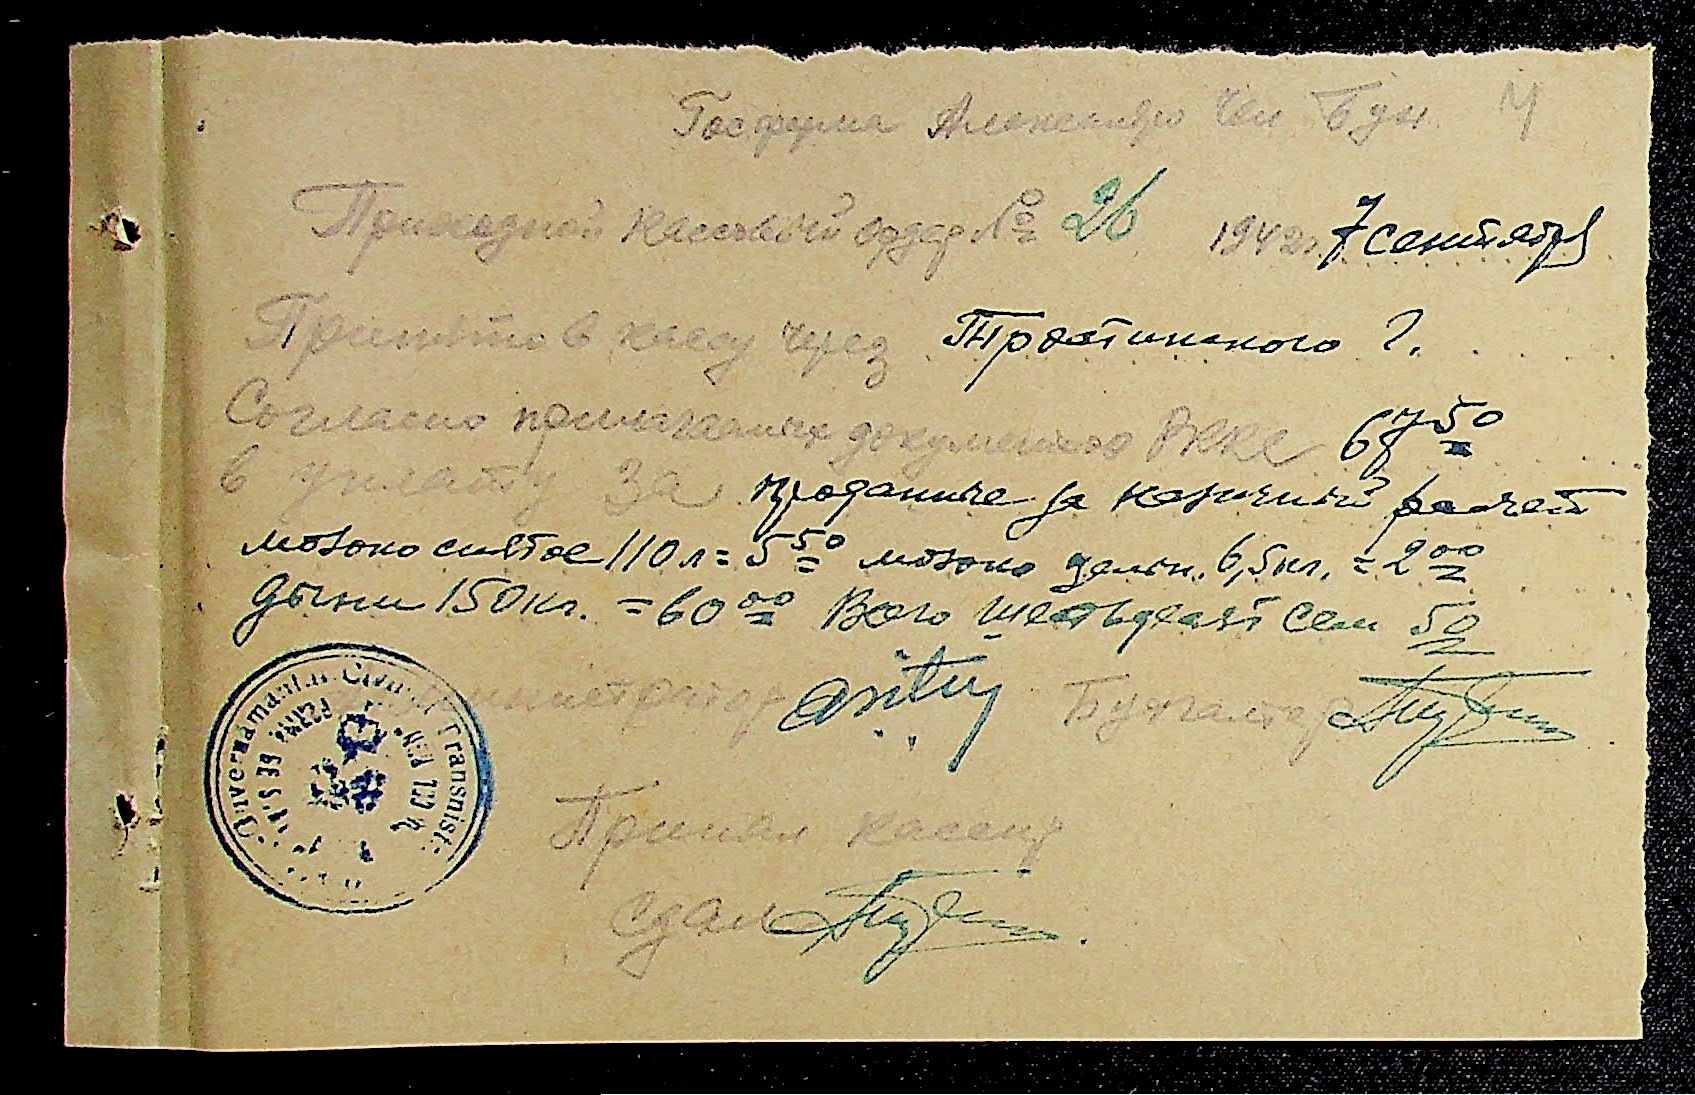 Госферма Александро Чел Бун
Приходной кассовый ордер № 26 1942 г. 7 сентября
Принято в кассу через
Согласно прилагаемых документов РККС 67 50
в уплату за проданные за наличный расчет
молоко снятое 110 л = 5 50 молоко цельн. 6,5 кг. = 2 00
дыни 150 кг. = 60 00 Всего шестьдесят сем 50
Администратор Бухгалтер
Принял кассир
Сдал
Guvernământul Civil Transnist